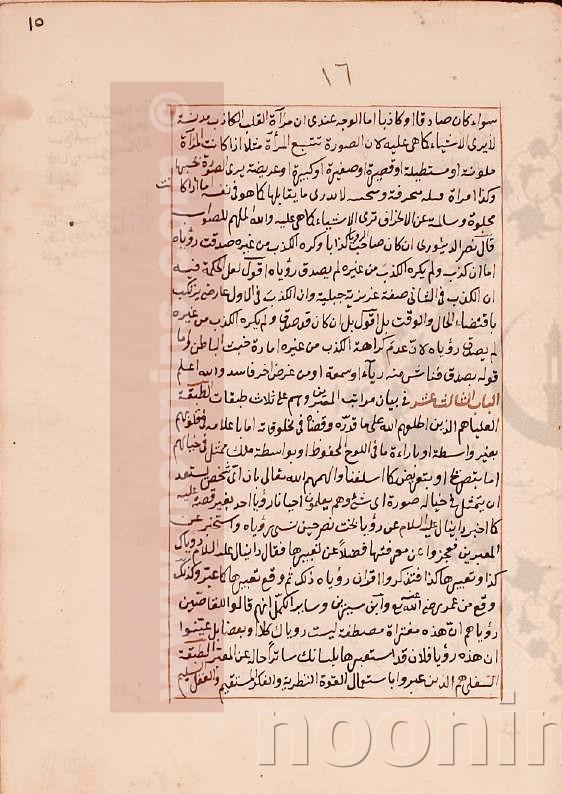 ١٥
١٦
سواء كان صادقا او كاذبا اما الوجه عندى ان مرآة القلب الكاذب مدنسة
لا يرى الاشياء كما هى عليه لان الصورة تتبع المرأة مثلا اذا كانت المرآة
ملونة او مستطيلة او قصيرة او صغيرة او كبيرة او عريضة يرى الصورة بحسبها
وكذا امرأة محرفة لا تدرى ما يقابلها كما هو فى نفسه اما اذا كانت
مجلوة وسالمة عن الانحراف ترى الاشياء كما هى عليه والله الملهم للصواب
قال نصر الدينورى ان كان صاحب الرؤيا كذابا وكره الكذب من غيره صدقت رؤياه
اما ان كذب ولم يكره الكذب من غيره لم يصدق رؤياه اقول لعل الحكمة فيه
ان الكذب فى الثانى صفة غريزية جبلية وان الكذب فى الاول عارضى يرتكب
باقتضاء الحال والوقت بل اقول بل ان كان قد صدق ولم يكره الكذب من غيره
لم يصدق رؤياه لان عدم كراهة الكذب من غيره امارة خبث الباطن واما
قوله يصدق فناش منه رياء او سمعة او من غرض آخر فاسد والله اعلم
الباب الثالث عشر فى بيان مراتب المعبرين وهم على ثلاث طبقات الطبقة
العليا هم الذين اطلعهم الله على ما قدره وقضاه فى مخلوقاته اما باعلامه فى قلوبهم
بغير واسطة او باراءة ما فى اللوح المحفوظ او بواسطة ملك ممثل فى خيالهم
اما بتصريح او بتعريض كما اسلفنا والهمهم الله تعالى بان اى شخص يستعد
ان يتمثل فى خياله صورة اى شئ وهم يعلمون احيانا رؤيا احد بغير قصه عليه
كما اخبر دانيال عليه السلام عن رؤيا بخت نصر حين نسى رؤياه واستخبر عن
المعبرين فعجزوا عن معرفتها فضلا عن تعبيرها فقال دانيال عليه السلام رؤياك
كذا وتعبيرها كذا فتذكروا اقران رؤياه ذلك ثم وقع تعبيرها كما عبر وكذلك
وقع من عمر رضى الله عنه وابن سيرين وساير الكمل انهم قالوا للقاصين
رؤياهم ان هذه مفتراة مصطنعة ليست رؤياك كلا او بعضا بل عينوا
ان هذه رؤيا فلان قد استعبرها بلسانك ساترا حاله عن المعبر الطبقة
السفلى هم الذين عبروا باستعمال القوة النظرية والفكر المستقيم والعقل السليم
noonin
www.noonin